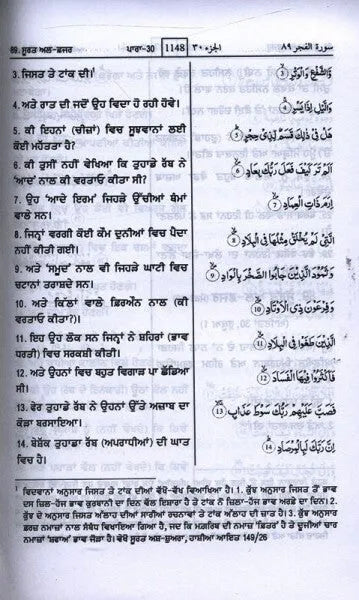 89. ਸੂਰਤ ਅਲ-ਫਜਰ ਪਾਰਾ-30 1148 الجزء ٣٠ سورة الفجر ٨٩
3. ਜਿਸਤ ਤੇ ਟਾਂਕ ਦੀ।
وَالشَّفْعِ وَالْوَتْرِ 3
4. ਅਤੇ ਰਾਤ ਦੀ ਜਦੋਂ ਉਹ ਵਿਦਾ ਹੋ ਰਹੀ ਹੋਵੇ।
وَالَّيْلِ إِذَا يَسْرِ 4
5. ਕੀ ਇਹਨਾਂ (ਚੀਜ਼ਾਂ) ਵਿਚ ਸੂਝਵਾਨਾਂ ਲਈ
ਕੋਈ ਮਹੱਤਤਾ ਹੈ?
هَلْ فِي ذَٰلِكَ قَسَمٌ لِّذِي حِجْرٍ 5
6. ਕੀ ਤੁਸੀਂ ਨਹੀਂ ਵੇਖਿਆ ਕਿ ਤੁਹਾਡੇ ਰੱਬ ਨੇ
'ਆਦ' ਨਾਲ ਕੀ ਵਰਤਾਓ ਕੀਤਾ ਸੀ?
أَلَمْ تَرَ كَيْفَ فَعَلَ رَبُّكَ بِعَادٍ 6
7. ਉਹ 'ਆਦੇ ਇਰਮ' ਜਿਹੜੇ ਉੱਚੀਆਂ ਥੰਮਾਂ
ਵਾਲੇ ਸਨ।
إِرَمَ ذَاتِ الْعِمَادِ 7
8. ਜਿਨ੍ਹਾਂ ਵਰਗੀ ਕੋਈ ਕੌਮ ਦੁਨੀਆਂ ਵਿਚ ਪੈਦਾ
ਨਹੀਂ ਕੀਤੀ ਗਈ।
الَّتِي لَمْ يُخْلَقْ مِثْلُهَا فِي الْبِلَادِ 8
9. ਅਤੇ 'ਸਮੂਦਾਂ' ਨਾਲ ਵੀ ਜਿਹੜੇ ਘਾਟੀ ਵਿਚ
ਚਟਾਨਾਂ ਤਰਾਸ਼ਦੇ ਸਨ।
وَثَمُودَ الَّذِينَ جَابُوا الصَّخْرَ بِالْوَادِ 9
10. ਅਤੇ ਕਿੱਲਾਂ ਵਾਲੇ ਫ਼ਿਰਔਨ ਨਾਲ (ਕੀ
ਵਰਤਾਓ ਕੀਤਾ?)।
وَفِرْعَوْنَ ذِي الْأَوْتَادِ 10
11. ਇਹ ਉਹ ਲੋਕ ਸਨ ਜਿਨ੍ਹਾਂ ਨੇ ਸ਼ਹਿਰਾਂ (ਭਾਵ
ਧਰਤੀ) ਵਿਚ ਸਰਕਸ਼ੀ ਕੀਤੀ।
الَّذِينَ طَغَوْا فِي الْبِلَادِ 11
12. ਅਤੇ ਉਹਨਾਂ ਵਿਚ ਬਹੁਤ ਵਿਗਾੜ ਪਾ ਛੱਡਿਆ
ਸੀ।
فَأَكْثَرُوا فِيهَا الْفَسَادَ 12
13. ਫੇਰ ਤੁਹਾਡੇ ਰੱਬ ਨੇ ਉਹਨਾਂ ਉੱਤੇ ਅਜ਼ਾਬ ਦਾ
ਕੋੜਾ ਬਰਸਾਇਆ।
فَصَبَّ عَلَيْهِمْ رَبُّكَ سَوْطَ عَذَابٍ 13
14. ਬੇਸ਼ੱਕ ਤੁਹਾਡਾ ਰੱਬ (ਅਪਰਾਧੀਆਂ) ਦੀ ਘਾਤ
ਵਿਚ ਹੈ।
إِنَّ رَبَّكَ لَبِالْمِرْصَادِ 14
ਵਿਦਵਾਨਾਂ ਅਨੁਸਾਰ ਜਿਸਤ ਤੇ ਟਾਂਕ ਦੀਆਂ ਵੱਖੋ-ਵੱਖ ਵਿਆਖਿਆ ਹੈ। 1. ਕੁੱਝ ਅਨੁਸਾਰ ਜਿਸਤ ਤੋਂ ਭਾਵ
ਦਸ ਜ਼ਿਲ-ਹੱਜ ਭਾਵ ਕੁਰਬਾਨੀ ਦਾ ਦਿਨ ਵੱਲ ਇਸ਼ਾਰਾ ਹੈ ਤੇ ਟਾਂਕ ਨੌਂ ਜ਼ਿਲ-ਹੱਜ ਭਾਵ ਅਰਫ਼ੇ ਦਾ ਦਿਨ। 2.
ਕੁੱਝ ਦੇ ਅਨੁਸਾਰ ਜਿਸਤ ਅੱਲਾਹ ਦੀਆਂ ਸਾਰੀਆਂ ਰਚਨਾਵਾਂ ਤੇ ਟਾਂਕ ਅੱਲਾਹ ਦੀ ਜ਼ਾਤ ਹੈ। 3. ਕੁੱਝ ਦਾ
ਫ਼ਰਜ਼ ਨਮਾਜ਼ਾਂ ਨਾਲ ਸੰਬੰਧ ਵਿਖਾਇਆ ਗਿਆ ਹੈ, ਜਦ ਕਿ ਮਗ਼ਰਿਬ ਦੀ ਨਮਾਜ਼ 'ਵਿਤਰ' ਹੈ ਤੇ ਦੂਜੀਆਂ ਚਾਰ
ਨਮਾਜ਼ਾਂ 'ਸ਼ਫ਼ਆ' ਭਾਵ ਜੋੜਾ ਹੈ। ਵੇਖੋ ਸੂਰਤ ਅਸ਼-ਸ਼ੁਅਰਾ, ਹਾਸ਼ੀਆ ਆਇਤ 149/26